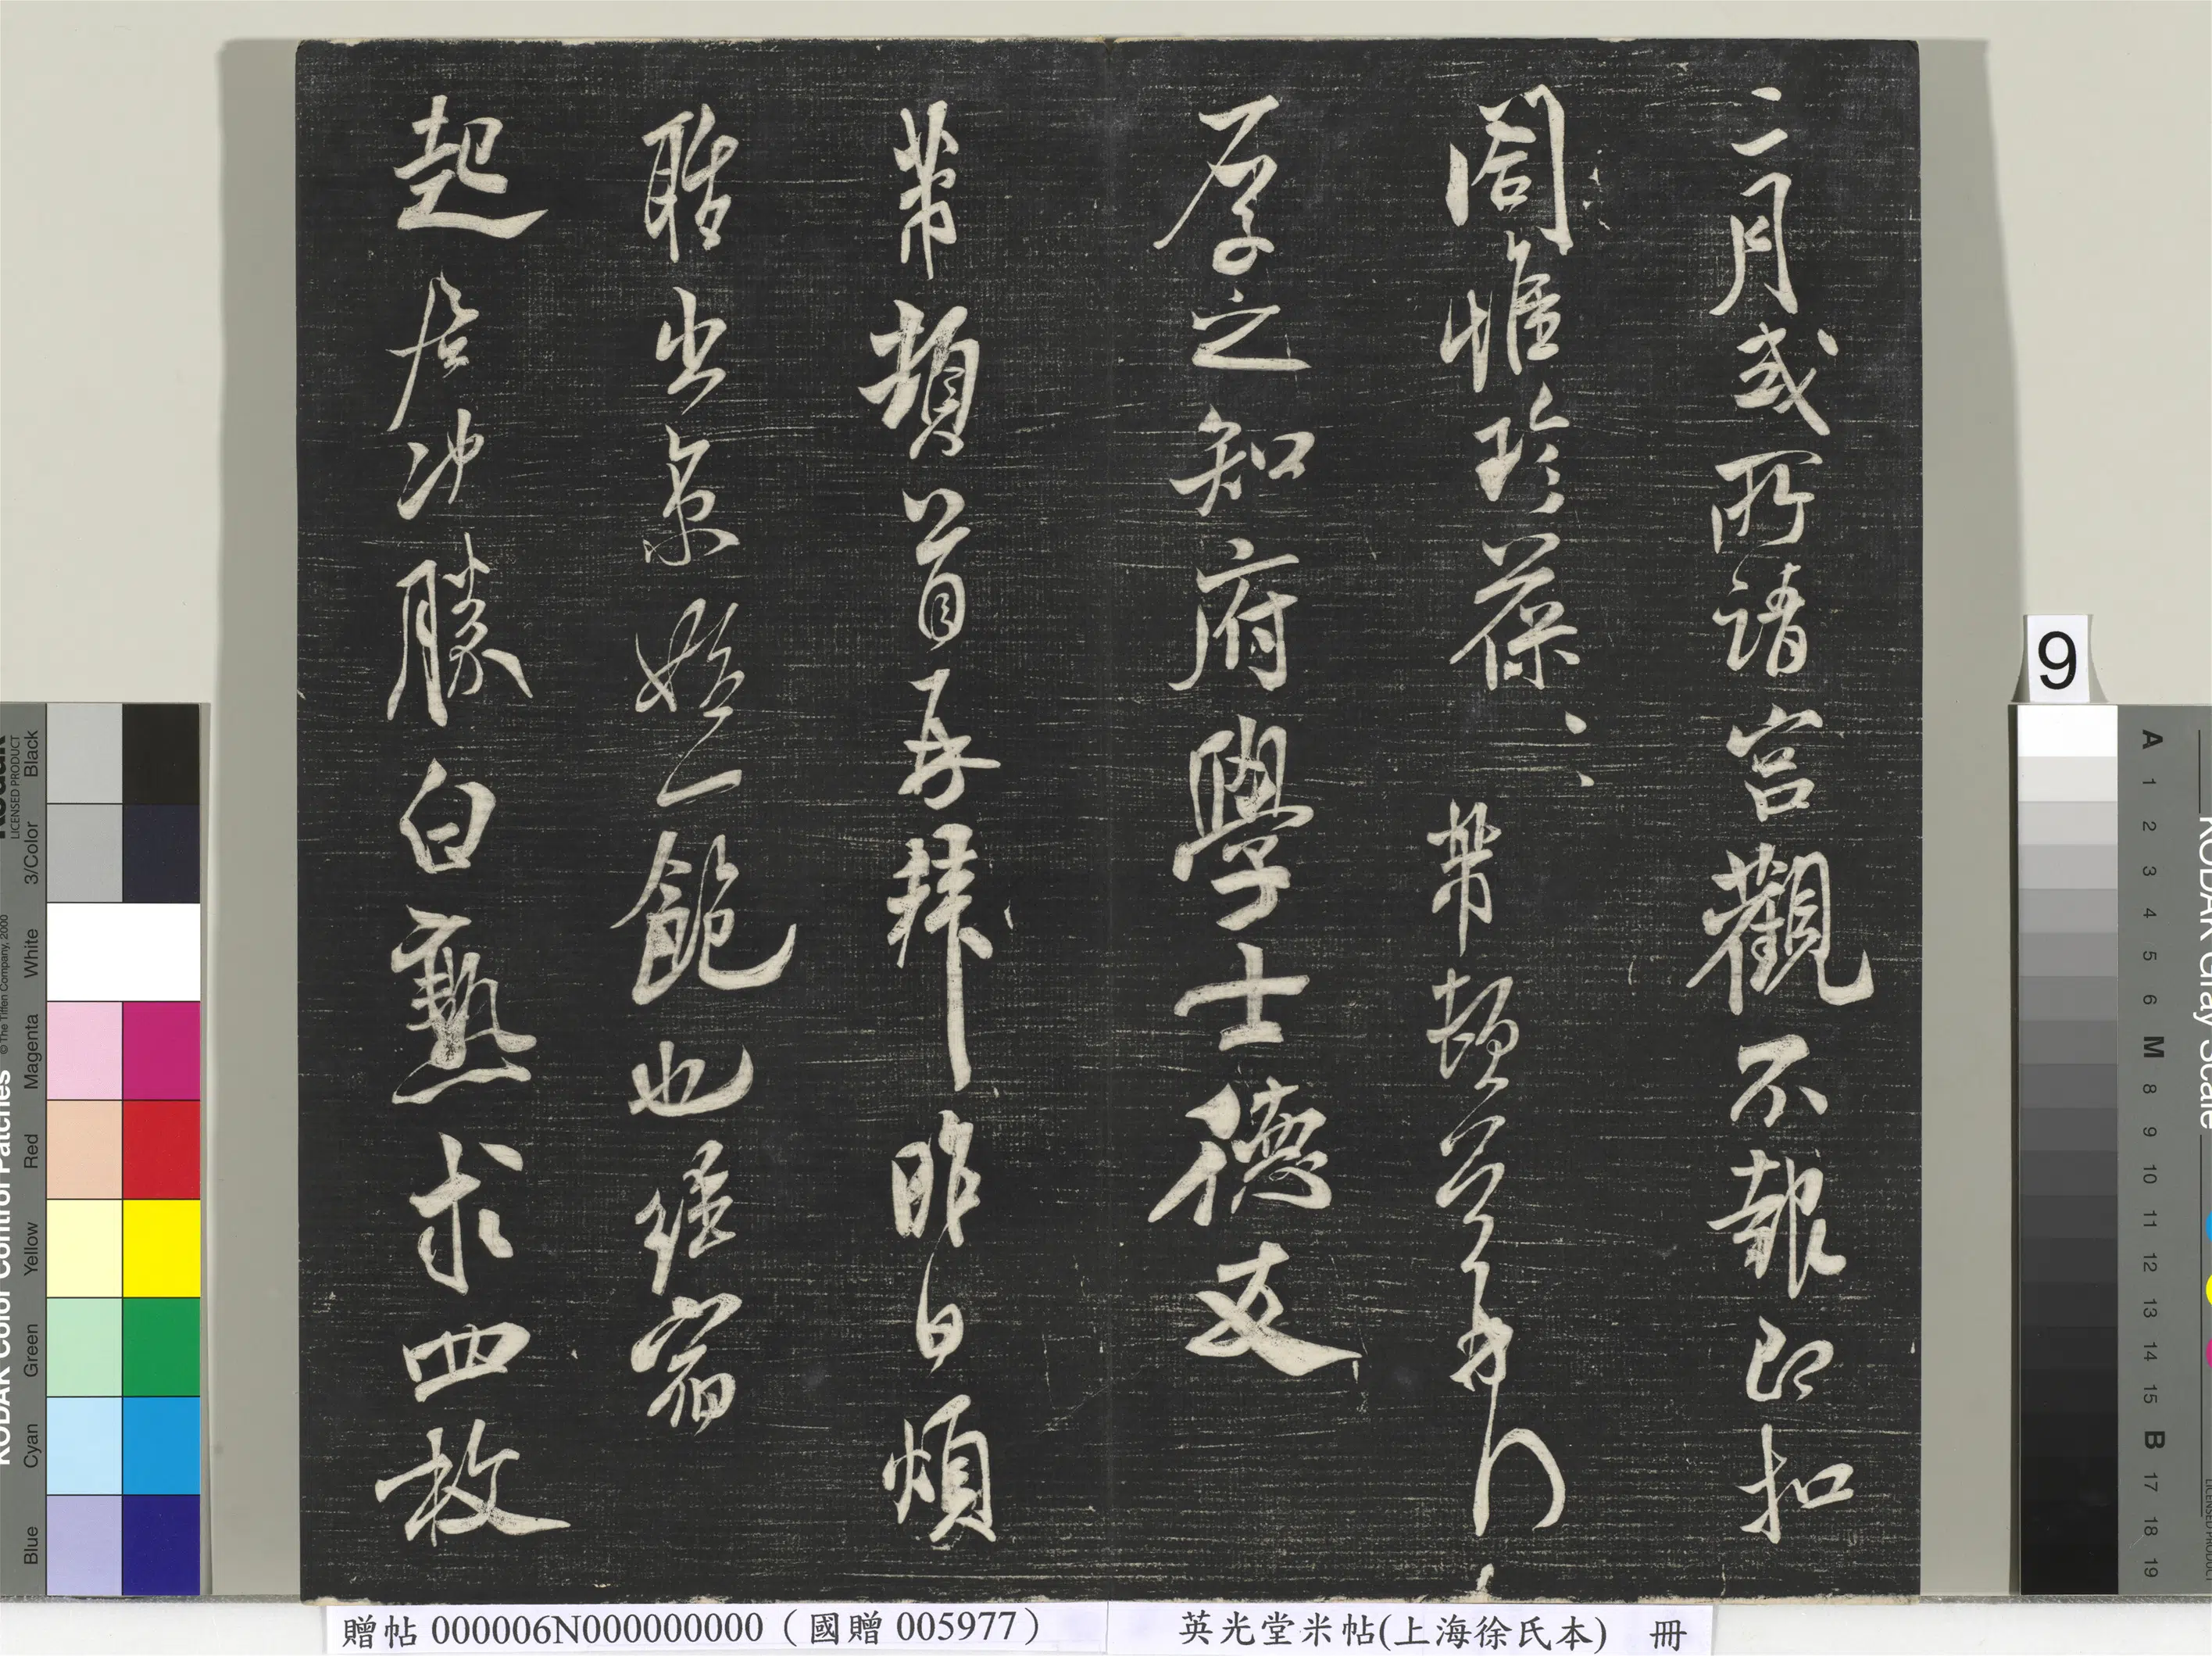 二月或所請宮觀不報即扣
閤惟珍葆〻芾頓首再拜
厚之知府學士德友
芾頓首再拜昨日煩
聒出京始一飽也經宿
起居沖勝白熟求四枚
9
KODAK Color Control Patches
LICENSED PRODUCT
© The Tiffen Company, 2000
Blue Cyan Green Yellow Red Magenta White 3/Color Black
KODAK Gray Scale
A 1 2 3 4 5 6 M 8 9 10 11 12 13 14 15 B 17 18 19
贈帖 000006N000000000（國贈 005977）
英光堂米帖(上海徐氏本) 冊